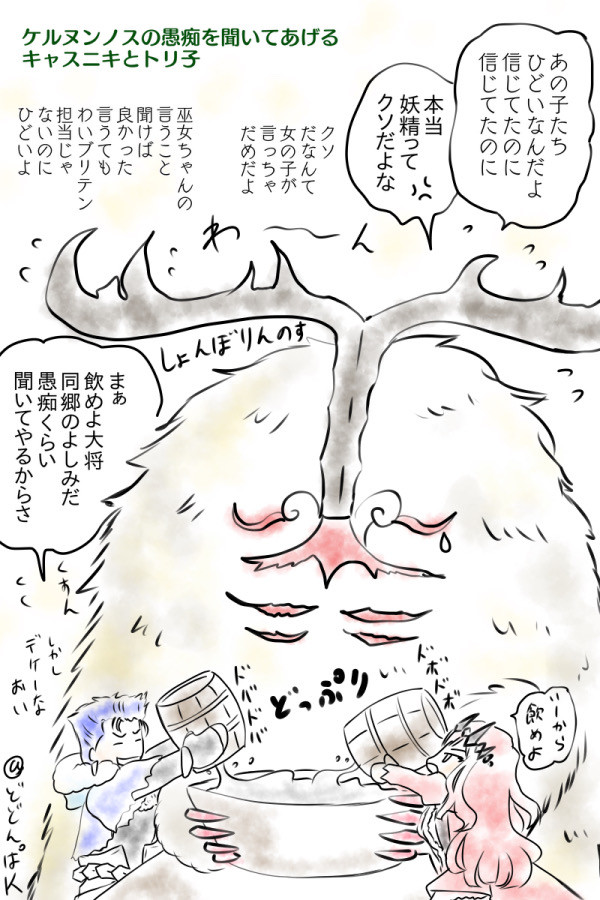 ケルヌンノスの愚痴を聞いてあげる
キャスニキとトリ子
あの子たち
ひどいなんだよ
信じてたのに
信じてたのに
本当
妖精って
クソだよな
クソ
だなんて
女の子が
言っちゃ
だめだよ
巫女ちゃんの
言うこと
聞けば
良かった
言うても
わいブリテン
担当じゃ
ないのに
ひどいよ
わーーん
しょんぼりんのす
まぁ
飲めよ大将
同郷のよしみだ
愚痴くらい
聞いてやるからさ
くぉん
しかし
デケーな
おい
ドバドバ
どっぷり
ドボドボ
いーから
飲めよ
@どどん。ぱK